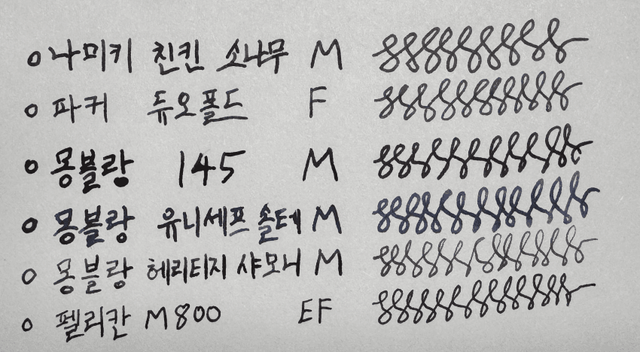 o 나미키 친킨 소나무 M
o 파커 듀오폴드 F
o 몽블랑 145 M
o 몽블랑 유니세프 솔리테 M
o 몽블랑 헤리티지 샤모니 M
o 펠리칸 M800 EF